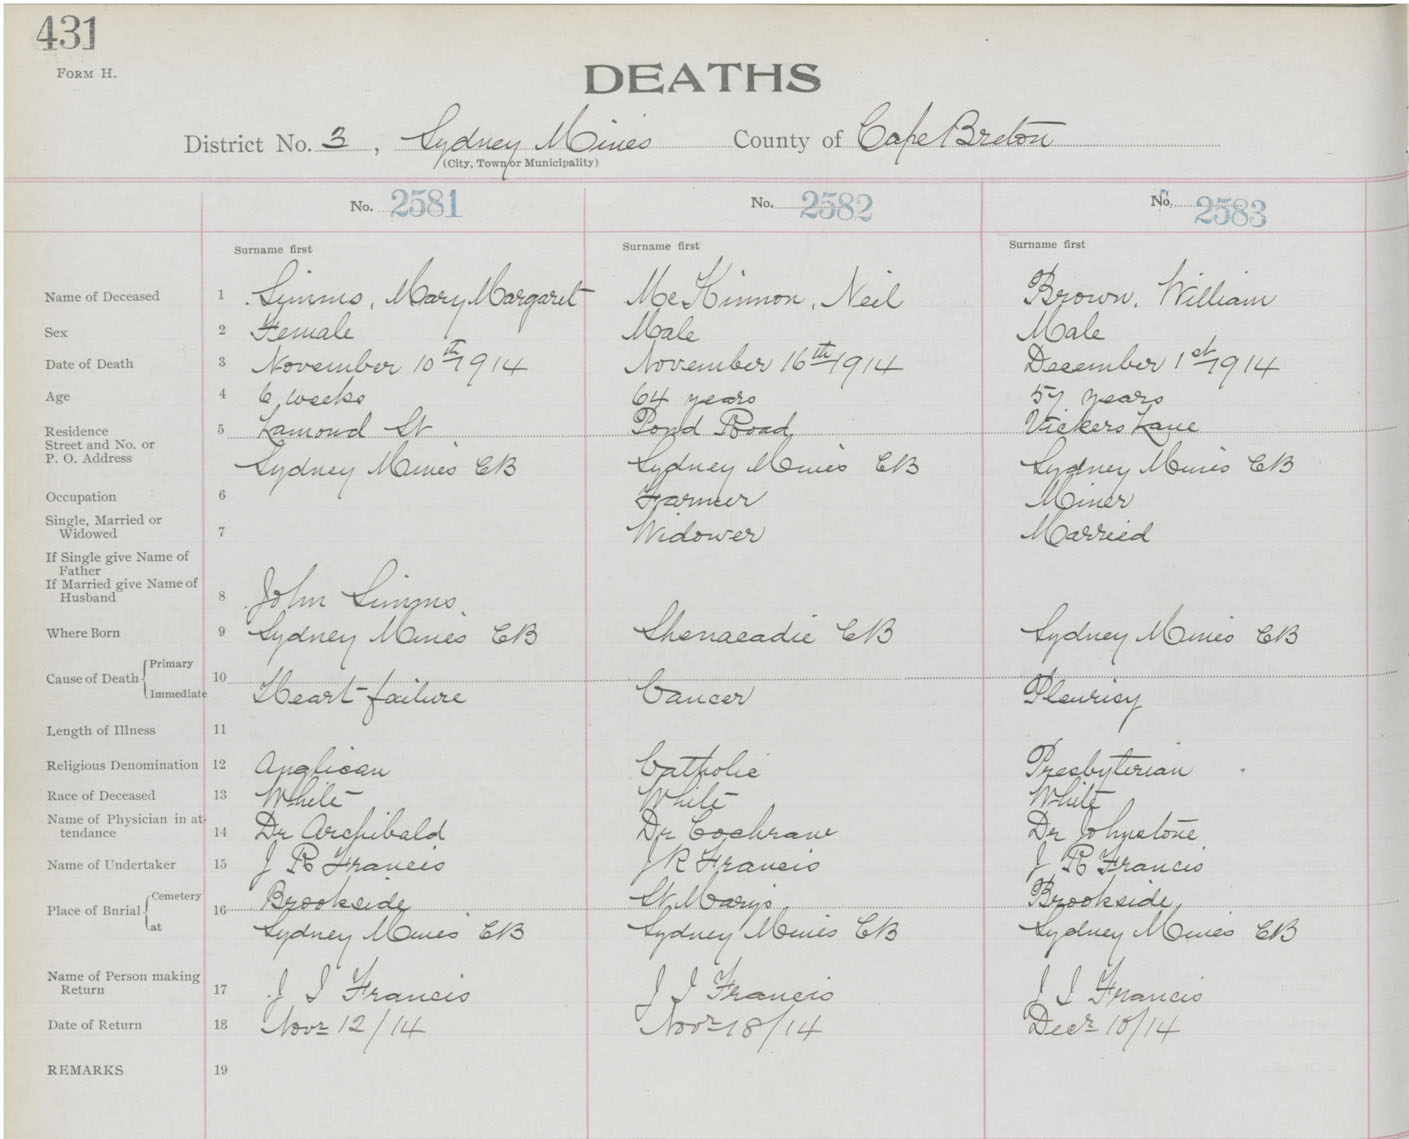 431
FORM H.
DEATHS
District No. 3, Sydney Mines County of Cape Breton
(City, Town or Municipality)
No. 2581 No. 2582 No. 2583
Surname first Surname first Surname first
Name of Deceased 1 Simms, Mary Margaret McKinnon, Neil Brown, William
Sex 2 Female Male Male
Date of Death 3 November 10th 1914 November 16th 1914 December 1st 1914
Age 4 6 weeks 64 years 57 years
Residence 5 Lamond St Pond Road Vickers Lane
Street and No. or
P. O. Address Sydney Mines CB Sydney Mines CB Sydney Mines CB
Occupation 6 Farmer Miner
Single, Married or
Widowed 7 Widower Married
If Single give Name of
Father
If Married give Name of
Husband 8 John Simms
Where Born 9 Sydney Mines CB Shenacadie CB Sydney Mines CB
Cause of Death Primary 10
Immediate Heart failure Cancer Pleurisy
Length of Illness 11
Religious Denomination 12 Anglican Catholic Presbyterian
Race of Deceased 13 White White White
Name of Physician in at-
tendance 14 Dr Archibald Dr Cochrane Dr Johnstone
Name of Undertaker 15 J R Francis J R Francis J R Francis
Place of Bnrial Cemetery 16 Brookside St. Marys Brookside
at Sydney Mines CB Sydney Mines CB Sydney Mines CB
Name of Person making
Return 17 J I Francis J I Francis J I Francis
Date of Return 18 Novr 12/14 Novr 18/14 Decr 10/14
REMARKS 19